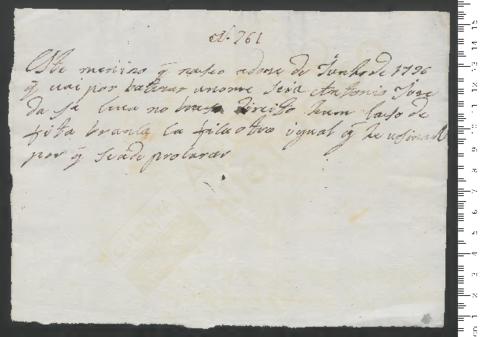 N. 761
Este menino q nasco adoze de Junho de 1796
q vai por batizar anome sera Antonio Joze
da sa leva no braso direito hum laso de
fita branca la fica otro igual q he o sinal
por q seade procurar